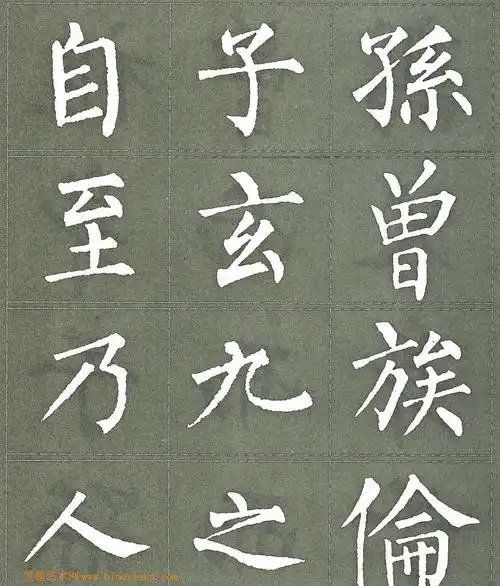 孫曾族倫
子玄九之
自至乃人